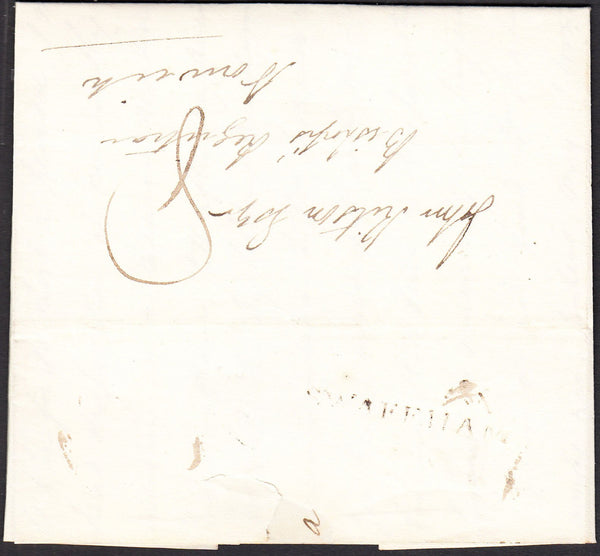 John Kitson Esqr
Bishop's Registrar
Norwich
8
SWAFFHAM